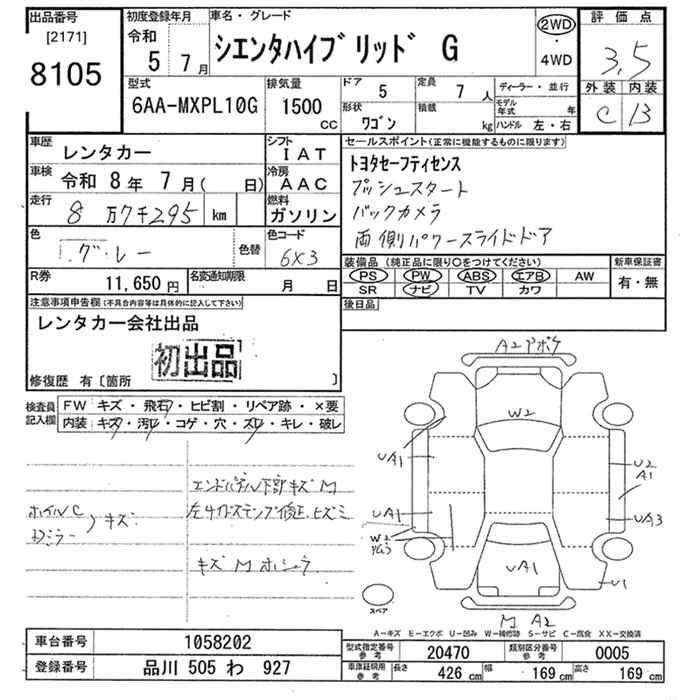 出品番号
[2171]
8105
初度登録年月
令和
5 7月
車名・グレード
シエンタハイブリッド G
2WD
・
4WD
評価点
3,5
外装 内装
C B
型式
6AA-MXPL10G
排気量
1500
CC
ドア
5
定員
7 人
形状
ワゴン
積載
kg
ディーラー・並行
モデル年式 年
ハンドル 左・右
車歴
レンタカー
シフト
IAT
車検
令和 8年 7月( 日)
冷房
AAC
走行
8万7千295 km
燃料
ガソリン
色
グレー
色替
色コード
6X3
セールスポイント(正常に機能するものに限ります)
トヨタセーフティセンス
プッシュスタート
バックカメラ
両側パワースライドドア
R券
11,650 円
名変通知期限
月 日
装備品(純正品に限り○をつけてください)
PS PW ABS エアB AW
SR ナビ TV カワ
新車保証書
有・無
注意事項申告欄(不具合内容等は具体的に記入して下さい)
レンタカー会社出品
初出品
修復歴 有〔箇所 〕
後日品
検査員
記入欄
FW キズ・飛石・ヒビ割・リペア跡・×要
内装 キズ・汚レ・コゲ・穴・スレ・キレ・破レ
エンドパネル下部キズM
ホイルC
ドミラー
キズ
左サイドステップ修正、ヒズミ
キズM ホシュウ
A2 アポケ
W2
UA1
U2
A1
A1
UA1
UA3
W2
UA1
U1
スペア
M A2
A-キズ E-エクボ U-凹み W-補修跡 S-サビ C-腐食 XX-交換済
車台番号
1058202
登録番号
品川 505 わ 927
型式指定番号
参考
20470
類別区分番号
参考
0005
車庫証明用
参考
長さ
426 cm
幅
169 cm
高さ
169 cm